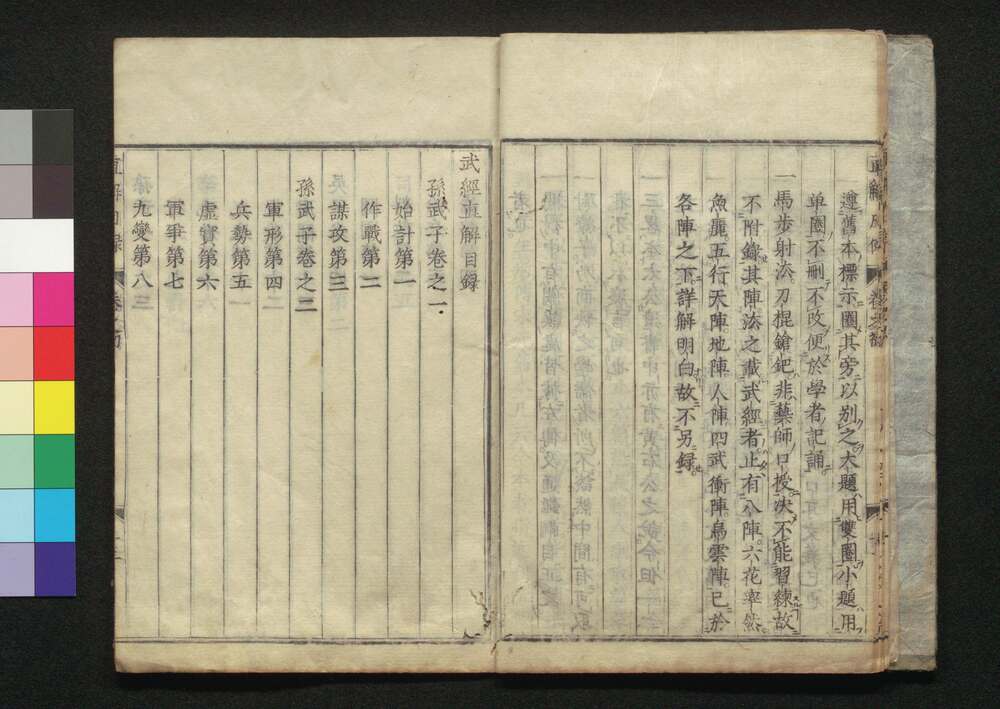 遵舊本標示圈其旁以别之大題用雙圈小題用
单圈不刪不改便於學者記誦
一馬步射法刀棍鎗鈀非藝師口授决不能習練故
不附錄其陣法之載武經者止有八陣六花率然
魚麗五行天陣地陣人陣四武衝陣鳥雲陣已於
各陣之下詳解明白故不另録
武經直解目録
孫武子卷之一
始計第一
作戰第二
謀攻第三
孫武子卷之二
軍形第四
兵勢第五
虛實第六
軍爭第七
九變第八
直解目録